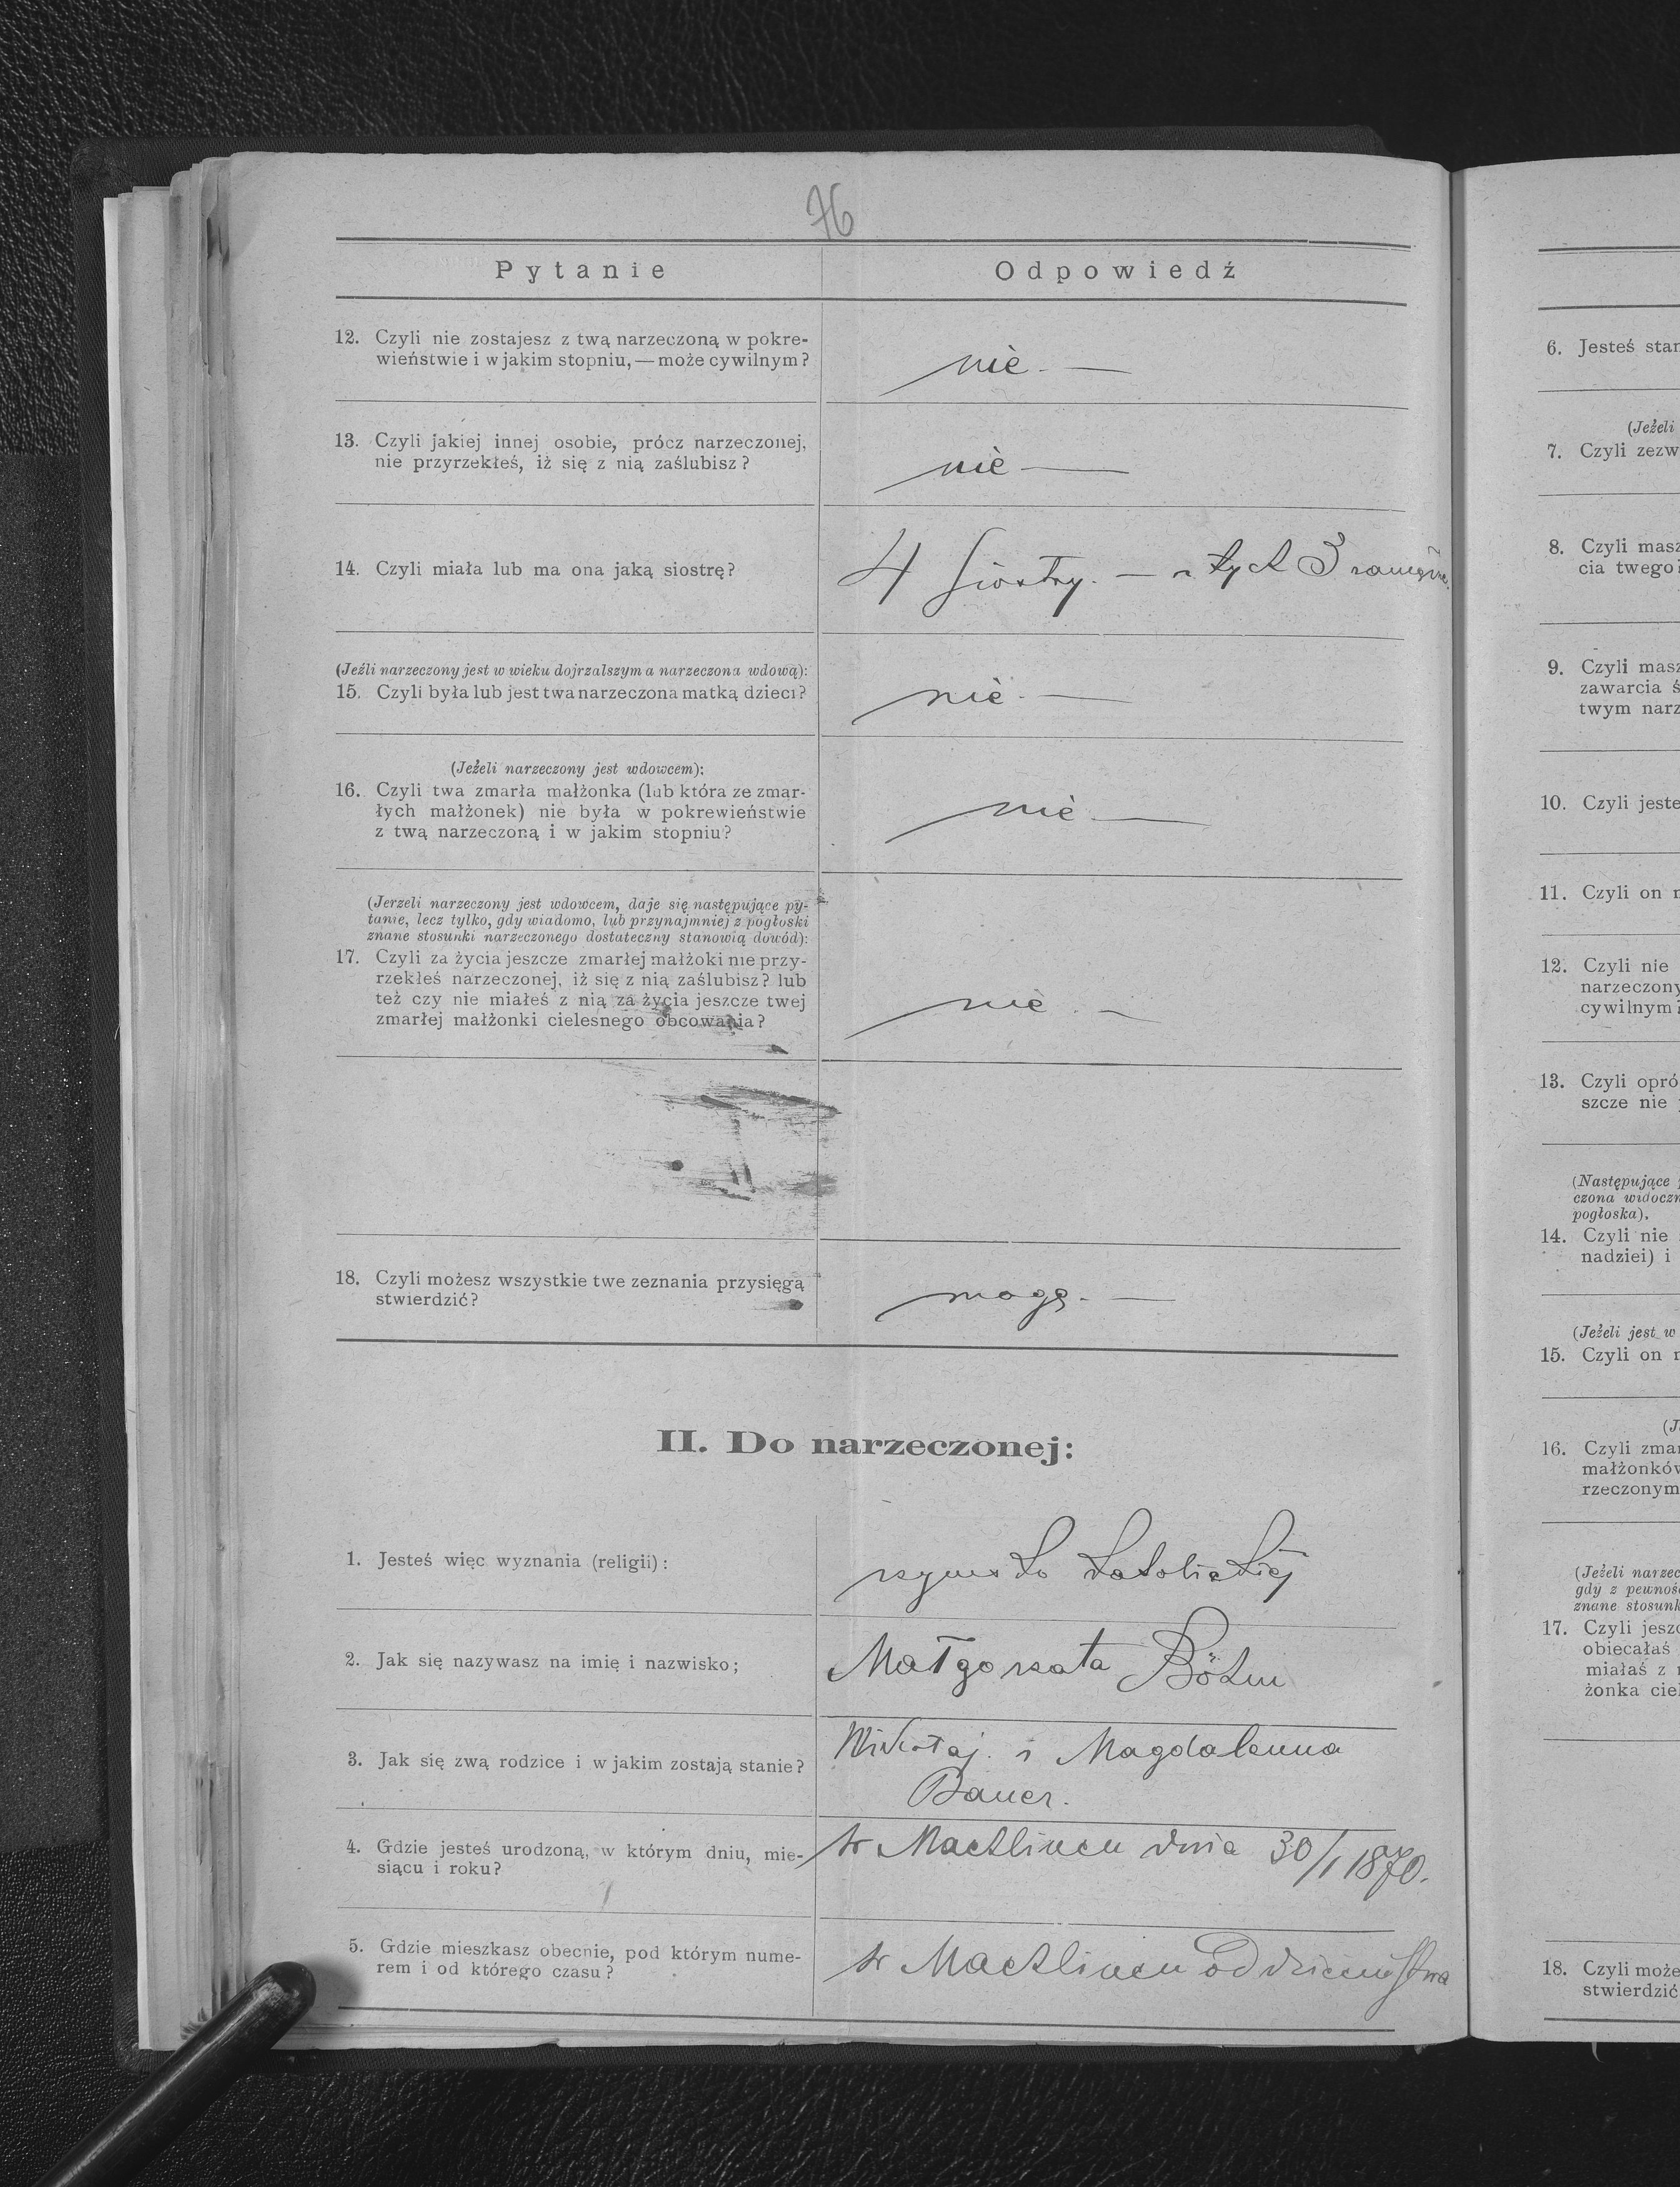 76
Pytanie Odpowiedź
12. Czyli nie zostajesz z twą narzeczoną w pokre-
wieństwie i w jakim stopniu, — może cywilnym?
nie. —
13. Czyli jakiej innej osobie, prócz narzeczonej,
nie przyrzekłeś, iż się z nią zaślubisz?
nie —
14. Czyli miała lub ma ona jaką siostrę?
4 siostry. — z tych 3
(Jeźli narzeczony jest w wieku dojrzalszym a narzeczona wdową):
15. Czyli była lub jest twa narzeczona matką dzieci?
nie. —
(Jeżeli narzeczony jest wdowcem):
16. Czyli twa zmarła małżonka (lub która ze zmar-
łych małżonek) nie była w pokrewieństwie
z twą narzeczoną i w jakim stopniu?
nie —
(Jerzeli narzeczony jest wdowcem, daje się następujące py-
tanie, lecz tylko, gdy wiadomo, lub przynajmniej z pogłoski
znane stosunki narzeczonego dostateczny stanowią dowód):
17. Czyli za życia jeszcze zmarłej małżoki nie przy-
rzekłeś narzeczonej, iż się z nią zaślubisz? lub
też czy nie miałeś z nią za życia jeszcze twej
zmarłej małżonki cielesnego obcowania?
nie. —
18. Czyli możesz wszystkie twe zeznania przysięgą
stwierdzić?
mogę. —
II. Do narzeczonej:
1. Jesteś więc wyznania (religii):
rzymsko katolickiej
2. Jak się nazywasz na imię i nazwisko;
Małgorzata Böhm
3. Jak się zwą rodzice i w jakim zostają stanie?
Mikołaj. i Magdalenna
Bauer.
4. Gdzie jesteś urodzoną, w którym dniu, mie-
siącu i roku?
w Machlincu dnia 30/1 1870.
5. Gdzie mieszkasz obecnie, pod którym nume-
rem i od którego czasu?
w Machlincu od dzieciństwa
6. Jesteś
(Jeżeli
7. Czyli
8. Czyli masz
cia twego
9. Czyli masz
zawarcia
twym
10. Czyli
11. Czyli on
12. Czyli nie
narzeczony
cywilnym
13. Czyli
szcze nie
(Następujące
czona
pogłoska).
14. Czyli nie
nadziei) i
(Jeżeli jest w
15. Czyli on
16. Czyli
małżonków
rzeczonym
(Jeżeli
gdy z
znane
17. Czyli
obiecałaś
miałaś z
żonka
18. Czyli
stwierdzić